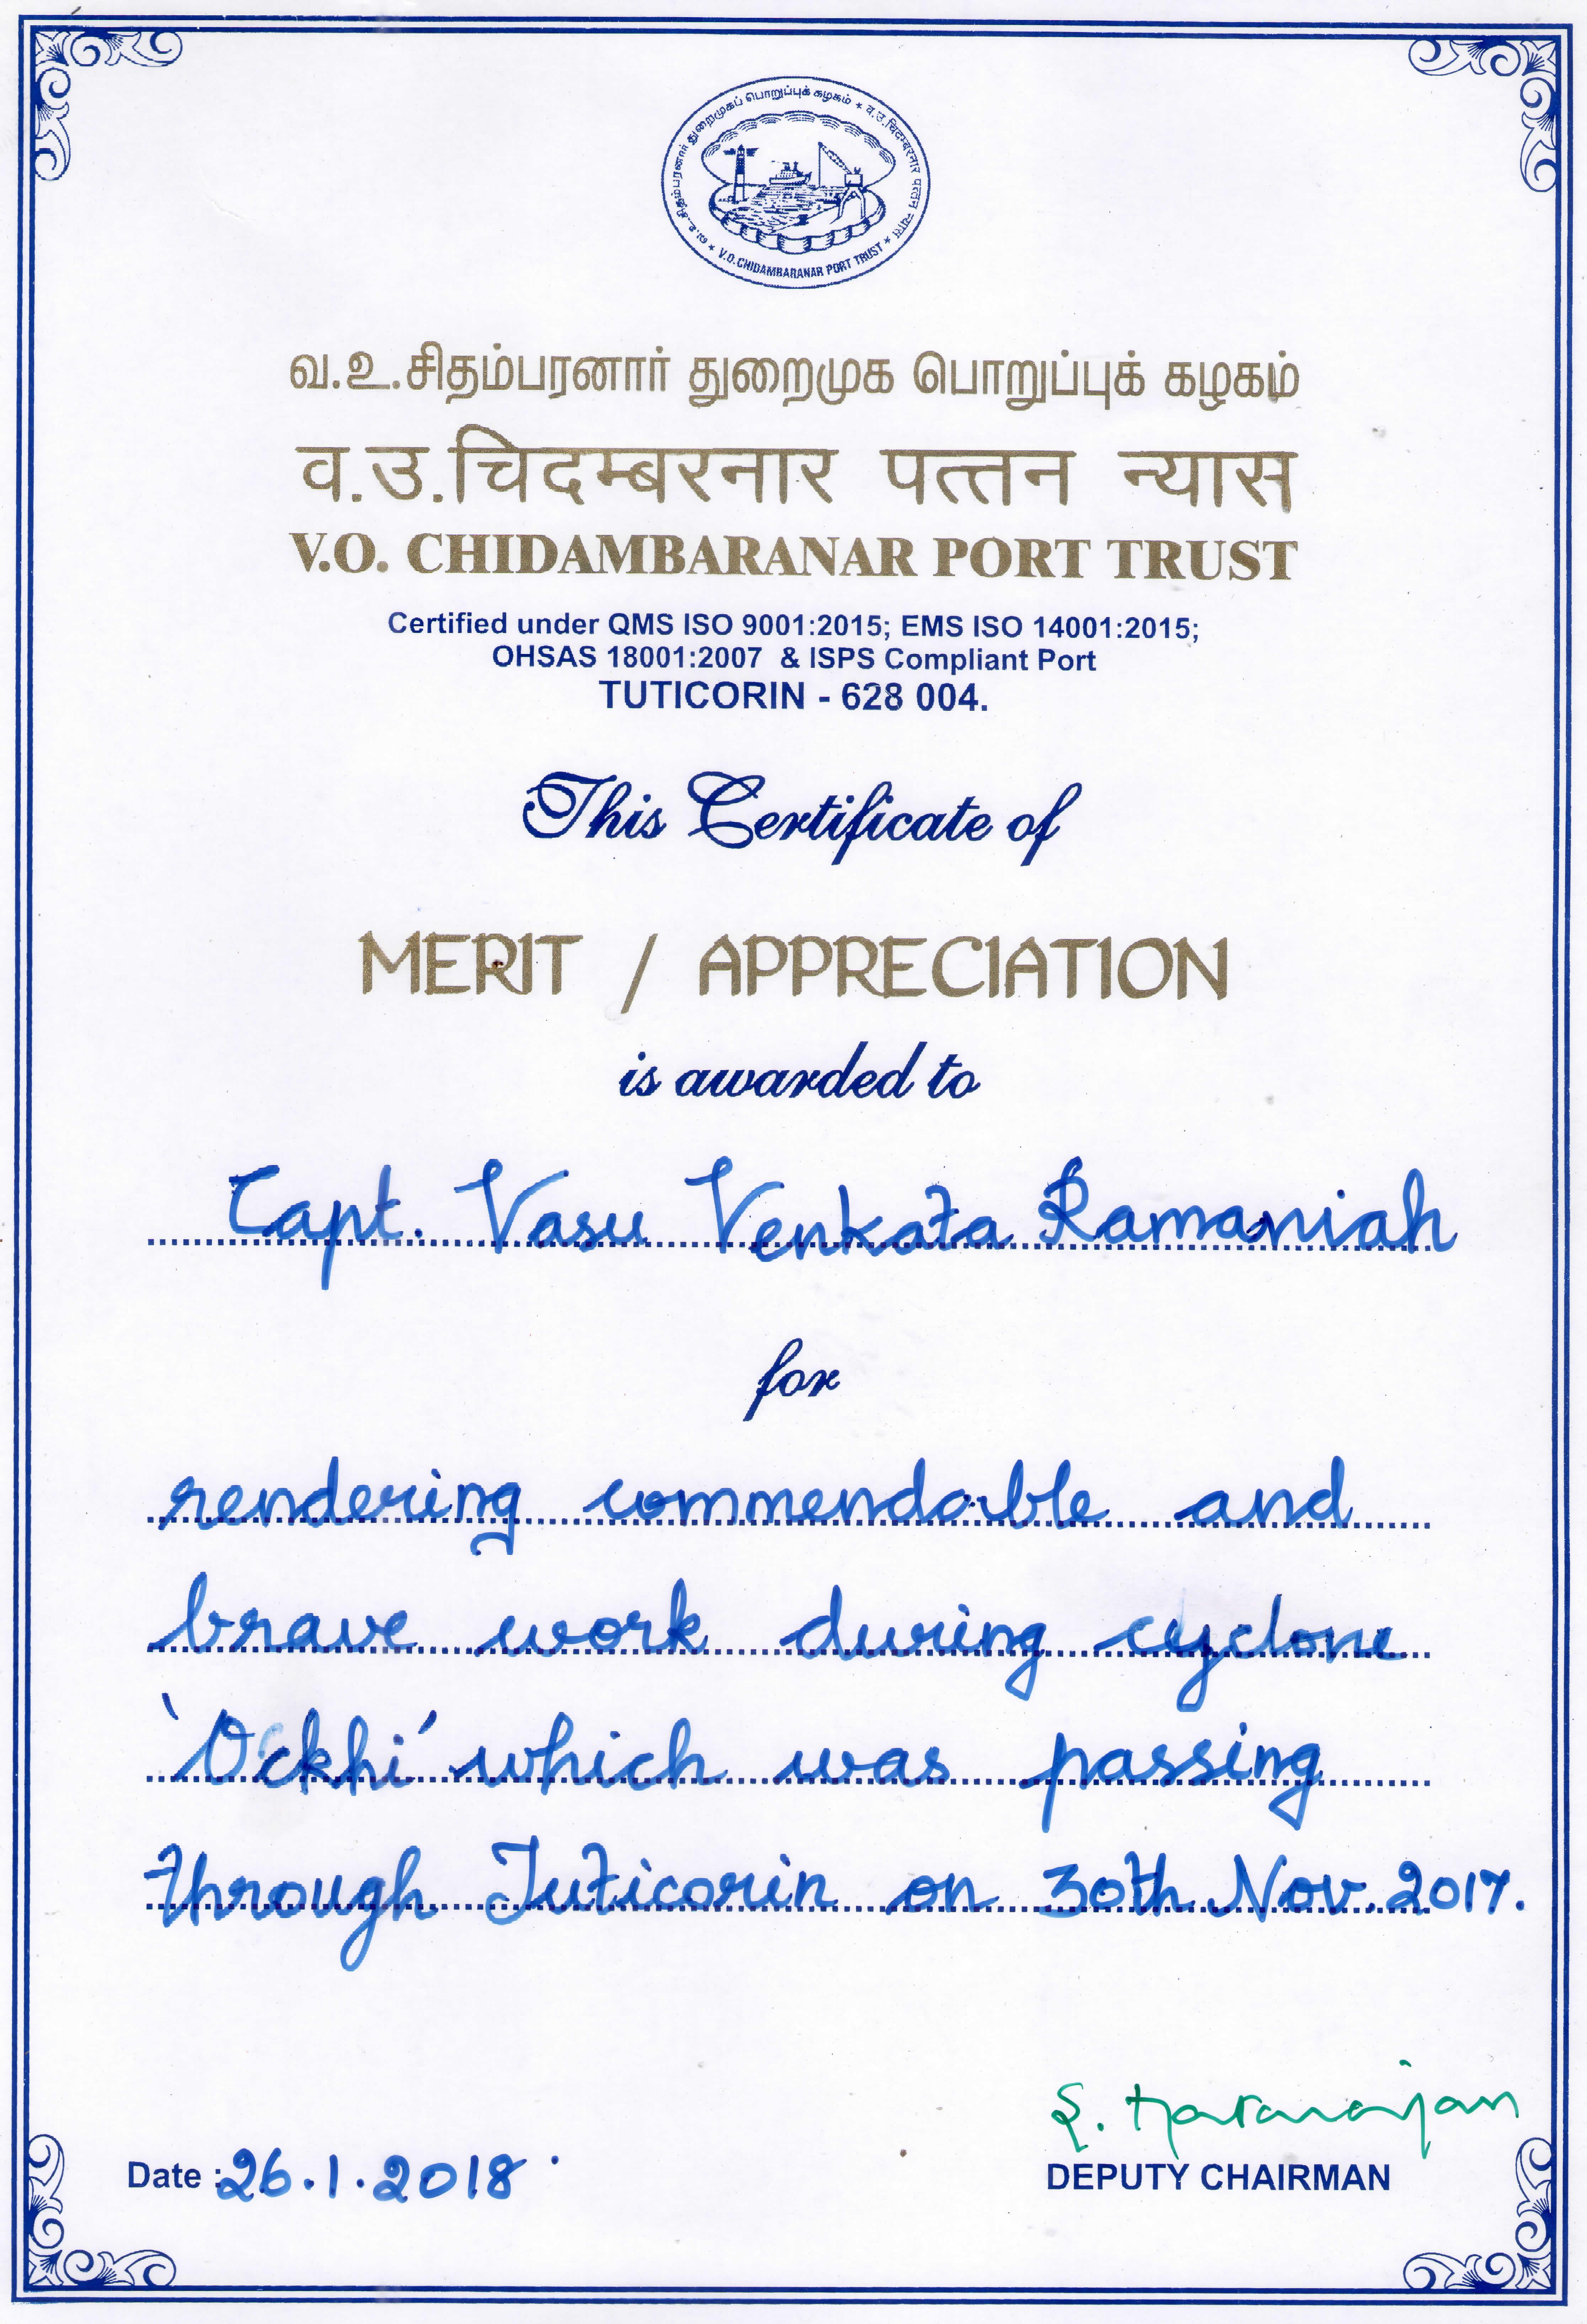 வ.உ.சிதம்பரனார் துறைமுகப் பொறுப்புக் கழகம் * व.उ.चिदम्बरनार पत्तन न्यास *
V.O.CHIDAMBARANAR PORT TRUST *
வ.உ.சிதம்பரனார் துறைமுக பொறுப்புக் கழகம்
व.उ.चिदम्बरनार पत्तन न्यास
V.O. CHIDAMBARANAR PORT TRUST
Certified under QMS ISO 9001:2015; EMS ISO 14001:2015;
OHSAS 18001:2007 & ISPS Compliant Port
TUTICORIN - 628 004.
This Certificate of
MERIT / APPRECIATION
is awarded to
Capt. Vasu Venkata Ramaniah
for
rendering commendable and
brave work during cyclone
'Ockhi' which was passing
through Tuticorin on 30th Nov. 2017.
S. Natarajan
Date : 26.1.2018
DEPUTY CHAIRMAN